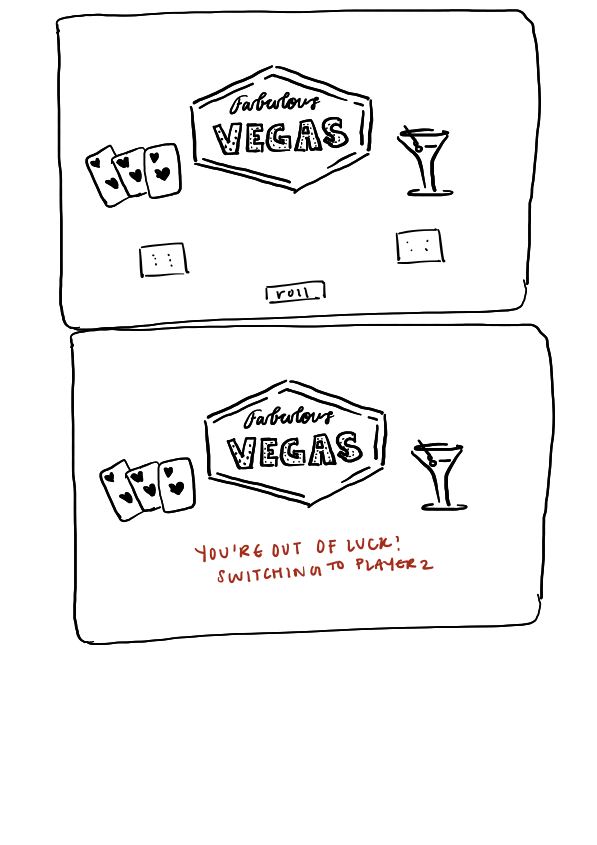 Fabulous
VEGAS
roll
Fabulous
VEGAS
YOU'RE OUT OF LUCK!
SWITCHING TO PLAYER 2